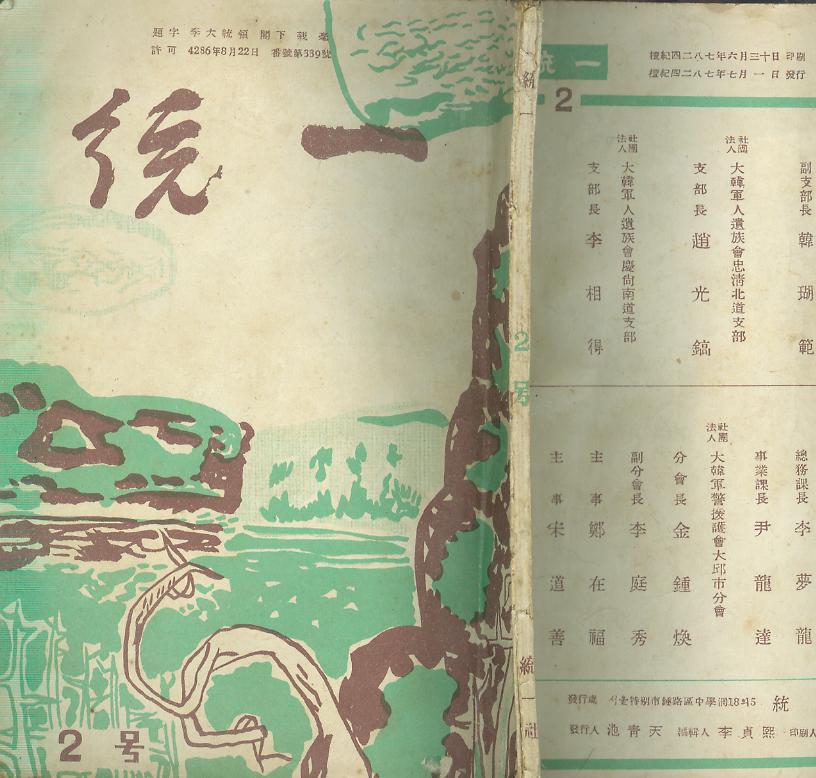 題字 李大統領 閣下 親 毫
許可 4286年8月22日 番號第339號
統一
2号
統一
2号
統一社
統一
2
檀紀四二八七年六月三十日 印刷
檀紀四二八七年七月 一 日 發行
副支部長 韓瑚範
社團法人 大韓軍人遺族會忠淸北道支部
支部長 趙光鎬
社團法人 大韓軍人遺族會慶尙南道支部
支部長 李相得
總務課長 李夢龍
事業課長 尹龍達
社團法人 大韓軍警援護會大邱市分會
分會長 金鍾煥
副分會長 李庭秀
主事 鄭在福
主事 宋道善
發行處 서울特別市鍾路區中學洞18의5 統
發行人 池青天 編輯人 李貞熙 印刷人